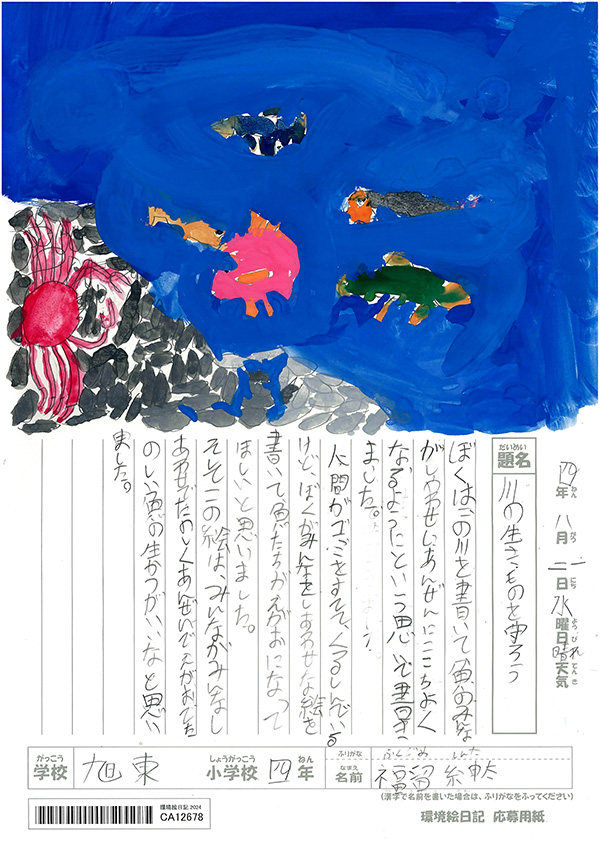 四年 八月 二一日 水曜日 晴れ 天気
ねん がつ にち ようび てんき
だいめい
題名
川の生きものを守ろう
ぼくはこの川を書いて魚のみんな
がしやわせいあんぜんにここちよく
なるようにという思いで書き
ました。
人間がゴミをすてて、くるしんでいる
けど、ぼくがみんなをしあわせな絵を
書いて魚たちがえがおになって
ほしいと思いました。
そしてこの絵は、みんながみんなし
あわせでたのしくあんぜいでえがおでた
のしい魚の生かつがいいなと思い
ました。
がっこう しょうがっこう ねん ふりがな
学校 旭東 小学校 四年
なまえ
名前 福留
(漢字で名前を書いた場合は、ふりがなをふってください)
環境絵日記 2024
CA12678
環境絵日記 応募用紙